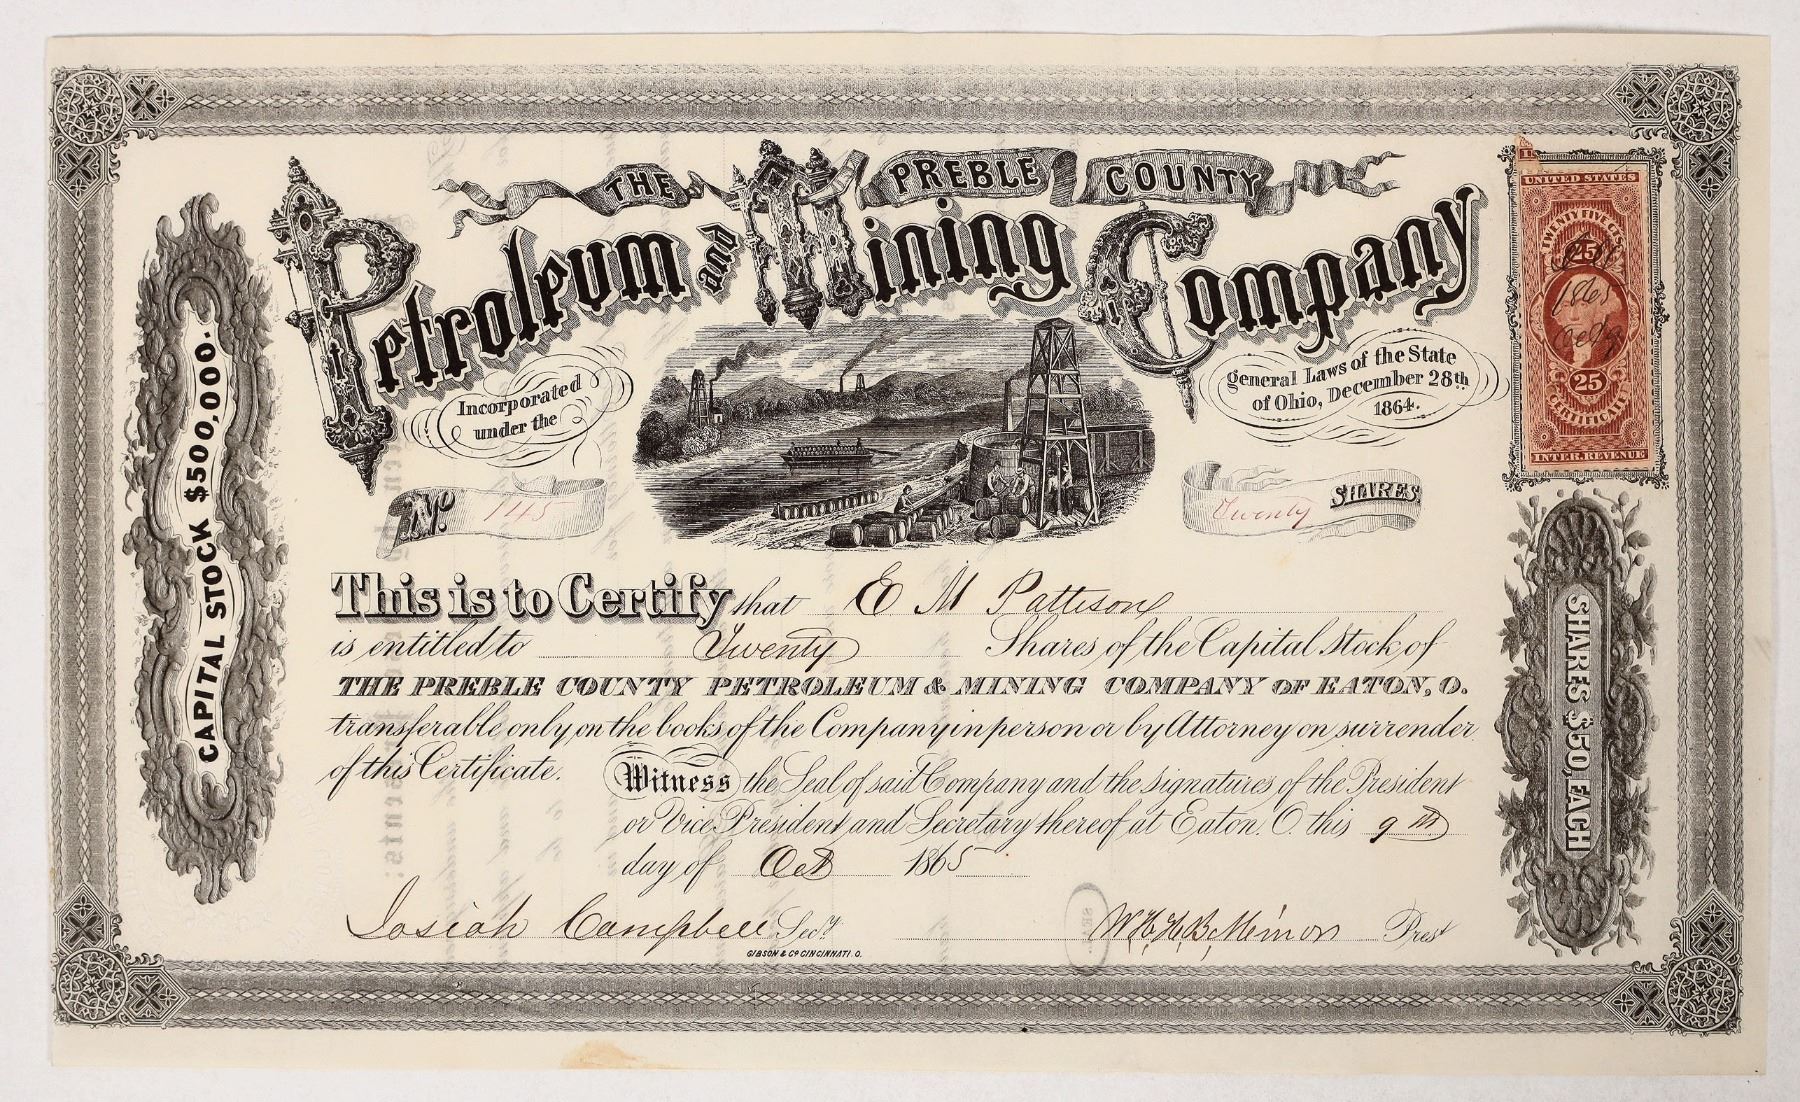 THE PREBLE COUNTY
Petroleum and Mining Company
Incorporated
under the
General Laws of the State
of Ohio, December 28th
1864.
No. 145
Twenty SHARES
CAPITAL STOCK $500,000.
SHARES $50, EACH
UNITED STATES
TWENTY FIVE CTS.
25
Oct
1865
Oct 9
25
CERTIFICATE
INTER. REVENUE
This is to Certify that E M Pattison
is entitled to Twenty Shares of the Capital Stock of
THE PREBLE COUNTY PETROLEUM & MINING COMPANY OF EATON, O.
transferable only on the books of the Company in person or by Attorney on surrender
of this Certificate. Witness the Seal of said Company and the signatures of the President
or Vice President and Secretary thereof at Eaton. O. this 9th
day of Oct 1865
Josiah Campbell Secy. Prest
GIBSON & CO CINCINNATI. O.